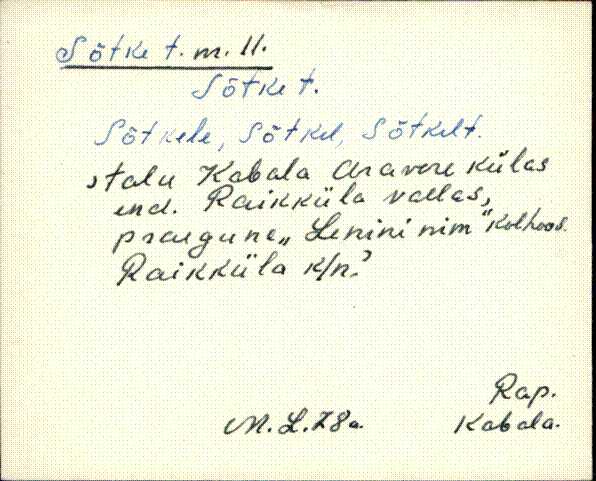 Sõtke t. m. II.
Sõtke t.
Sõtkele, Sõtkel, Sõtkelt.
›talu Kabala Aravere külas
end. Raikküla vallas,
praegune „Lenini nim“ kolhoos.
Raikküla k/n.›
Rap.
M. L. 78 a. Kabala.